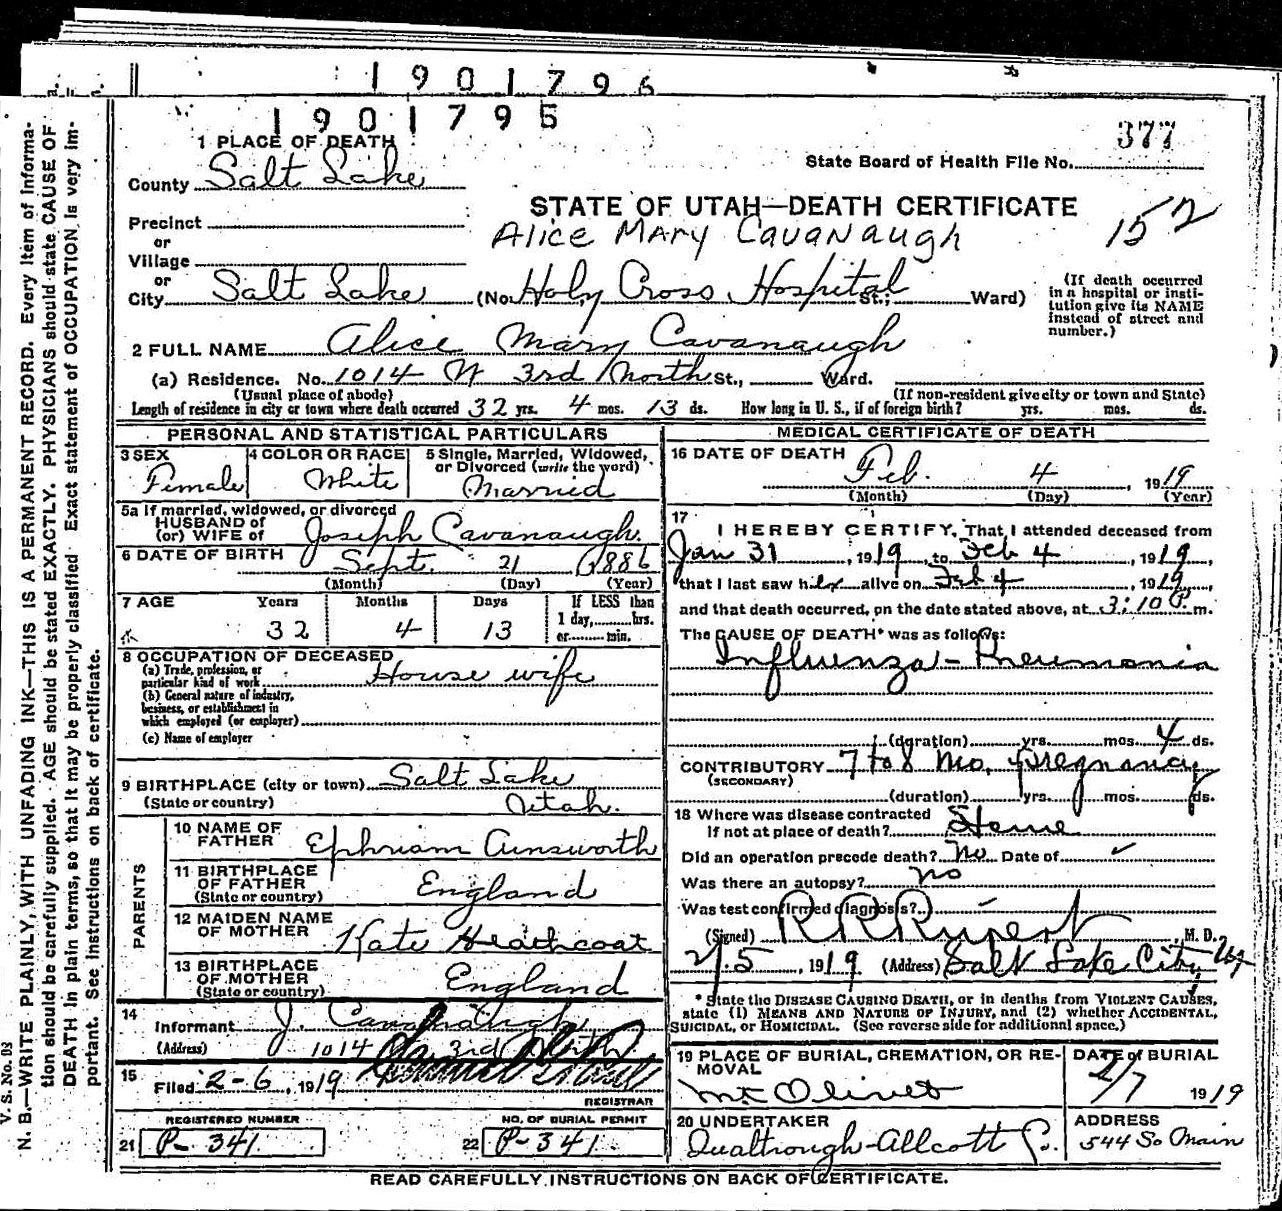 1901796
1901795
377
1 PLACE OF DEATH
State Board of Health File No.
County Salt Lake
STATE OF UTAH—DEATH CERTIFICATE
Precinct
Alice Mary Cavanaugh
152
or
Village
or
City Salt Lake (No. Holy Cross Hospital St.; Ward)
(If death occurred
in a hospital or insti-
tution give its NAME
instead of street and
number.)
2 FULL NAME Alice Mary Cavanaugh
(a) Residence. No. 1014 W 3rd North St., Ward.
(Usual place of abode) (If non-resident give city or town and State)
Length of residence in city or town where death occurred 32 yrs. 4 mos. 13 ds. How long in U. S., if of foreign birth? yrs. mos. ds.
PERSONAL AND STATISTICAL PARTICULARS
3 SEX
Female
4 COLOR OR RACE
White
5 Single, Married, Widowed,
or Divorced (write the word)
Married
5a If married, widowed, or divorced
HUSBAND of
(or) WIFE of Joseph Cavanaugh
6 DATE OF BIRTH Sept. 21 1886
(Month) (Day) (Year)
7 AGE Years Months Days If LESS than
1 day, hrs.
32 4 13 or min.
8 OCCUPATION OF DECEASED
(a) Trade, profession, or
particular kind of work House wife
(b) General nature of industry,
business, or establishment in
which employed (or employer)
(c) Name of employer
9 BIRTHPLACE (city or town) Salt Lake
(State or country) Utah.
PARENTS
10 NAME OF
FATHER Ephriam Ainsworth
11 BIRTHPLACE
OF FATHER England
(State or country)
12 MAIDEN NAME
OF MOTHER Kate Heathcoat
13 BIRTHPLACE
OF MOTHER England
(State or country)
14
Informant J. Cavanaugh
(Address) 1014 W 3rd North
15
Filed 2-6, 1919
REGISTRAR
REGISTERED NUMBER
21 P-341
NO. OF BURIAL PERMIT
22 P-341
MEDICAL CERTIFICATE OF DEATH
16 DATE OF DEATH Feb. 4, 1919
(Month) (Day) (Year)
17
I HEREBY CERTIFY, That I attended deceased from
Jan 31, 1919, to Feb 4, 1919,
that I last saw her alive on Feb 4, 1919,
and that death occurred, on the date stated above, at 3:10 P. m.
The CAUSE OF DEATH* was as follows:
Influenza - Pneumonia
(duration) yrs. mos. 4 ds.
CONTRIBUTORY 7 to 8 mo. pregnancy
(SECONDARY)
(duration) yrs. mos. ds.
18 Where was disease contracted
if not at place of death? Home
Did an operation precede death? No Date of
Was there an autopsy? no
Was test confirmed diagnosis? -
(Signed) R R Rupert M. D.
2/5, 1919 (Address) Salt Lake City
* State the DISEASE CAUSING DEATH, or in deaths from VIOLENT CAUSES,
state (1) MEANS AND NATURE OF INJURY, and (2) whether ACCIDENTAL,
SUICIDAL, or HOMICIDAL. (See reverse side for additional space.)
19 PLACE OF BURIAL, CREMATION, OR RE-
MOVAL
Mt. Olivet
DATE of BURIAL
2/7 1919
20 UNDERTAKER
Qualtrough-Allcott Co.
ADDRESS
544 So Main
READ CAREFULLY INSTRUCTIONS ON BACK OF CERTIFICATE.
V. S. No. D3
N. B.—WRITE PLAINLY, WITH UNFADING INK—THIS IS A PERMANENT RECORD. Every item of informa-
tion should be carefully supplied. AGE should be stated EXACTLY. PHYSICIANS should state CAUSE OF
DEATH in plain terms, so that it may be properly classified. Exact statement of OCCUPATION is very im-
portant. See instructions on back of certificate.